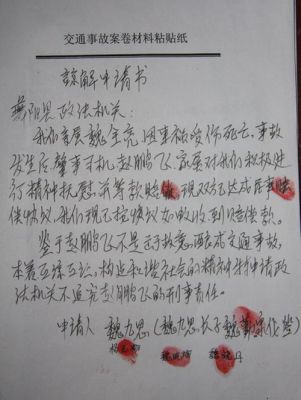 交通事故案卷材料粘贴纸
谅解申请书
县政法机关：
我们亲属魏金亮，因车祸受伤死亡，事故
发生后，肇事司机赵鹏飞家要对我们积极进
行精神抚慰并等款赔，现双方达成民事赔
偿协议，我们现已按协议如数收到赔偿款。
鉴于赵鹏飞不是故意，酿成交通事故，
本着互谅互让，构造和谐社会的精神，特申请政
法机关不追究赵鹏飞的刑事责任。
申请人 魏九思（魏九思长子魏代签）
魏 丹